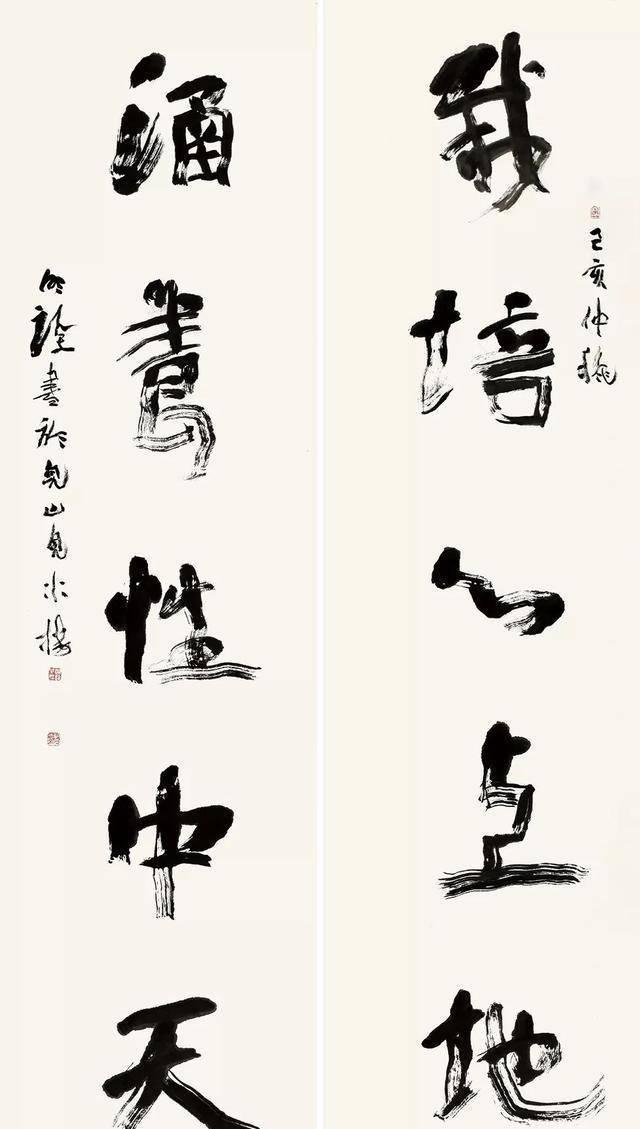 己亥仲穐
栽培心上地
涵養性中天
明詮書於見山見水樓